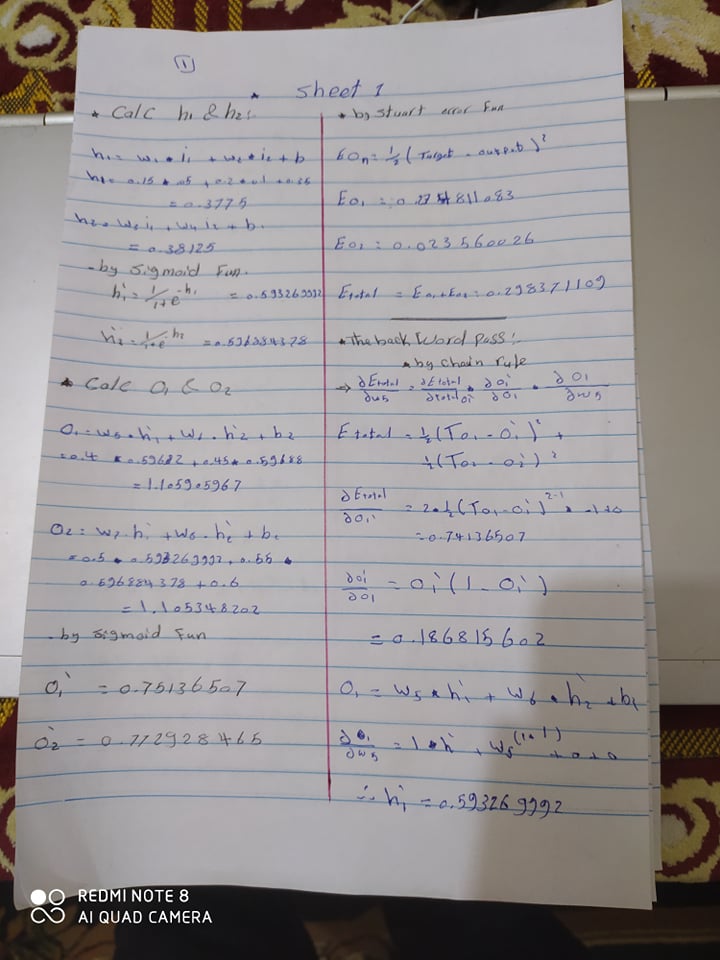 1
* Sheet 1
* Calc h₁ & h₂:
h₁ = w₁ * i₁ + w₂ * i₂ + b
= 0.15 * .05 + 0.2 * 0.1 + 0.35
= 0.3775
i₁ + w₄ i₂ + b₁
= 0.38125
- by Sigmoid Fun.
h₁' = 1/1+e^-h₁ = 0.593269992
h₂' = 1/1+e^-h₂ = 0.596884378
* Calc O₁ & O₂
O₁ = w₅ * h₁' + w₆ * h₂' + b₂
= 0.4 * 0.59682 + 0.45 * 0.59688
= 1.105905967
O₂ = w₇ * h₁' + w₈ * h₂' + b₂
= 0.5 * 0.593269992 + 0.55 *
0.596884378 + 0.6
= 1.105348202
- by sigmoid Fun
O₁' = 0.75136507
O₂' = 0.772928465
* by Stuart error Fun
EOn = 1/2 ( Target - output )²
Eo₁ = 0.274811083
Eo₂ = 0.023560026
Etotal = Eo₁ + Eo₂ = 0.298371109
* The back Word Pass:
* by chain rule
→ ∂Etotal/∂w₅ = ∂Etotal/∂o₁' * ∂o₁'/∂o₁ * ∂o₁/∂w₅
Etotal = 1/2 (To₁ - o₁')² +
1/2 (To₂ - o₂')²
∂Etotal/∂o₁' = 2 * 1/2 (To₁ - o₁')²⁻¹ * -1 + 0
= 0.74136507
∂o₁'/∂o₁ = o₁' (1 - o₁')
= 0.186815602
O₁ = w₅ * h₁' + w₆ * h₂' + b₂
∂o₁/∂w₅ = 1 * h₁' + w₅^(1-1) + 0 + 0
∴ h₁' = 0.593269992
REDMI NOTE 8
AI QUAD CAMERA